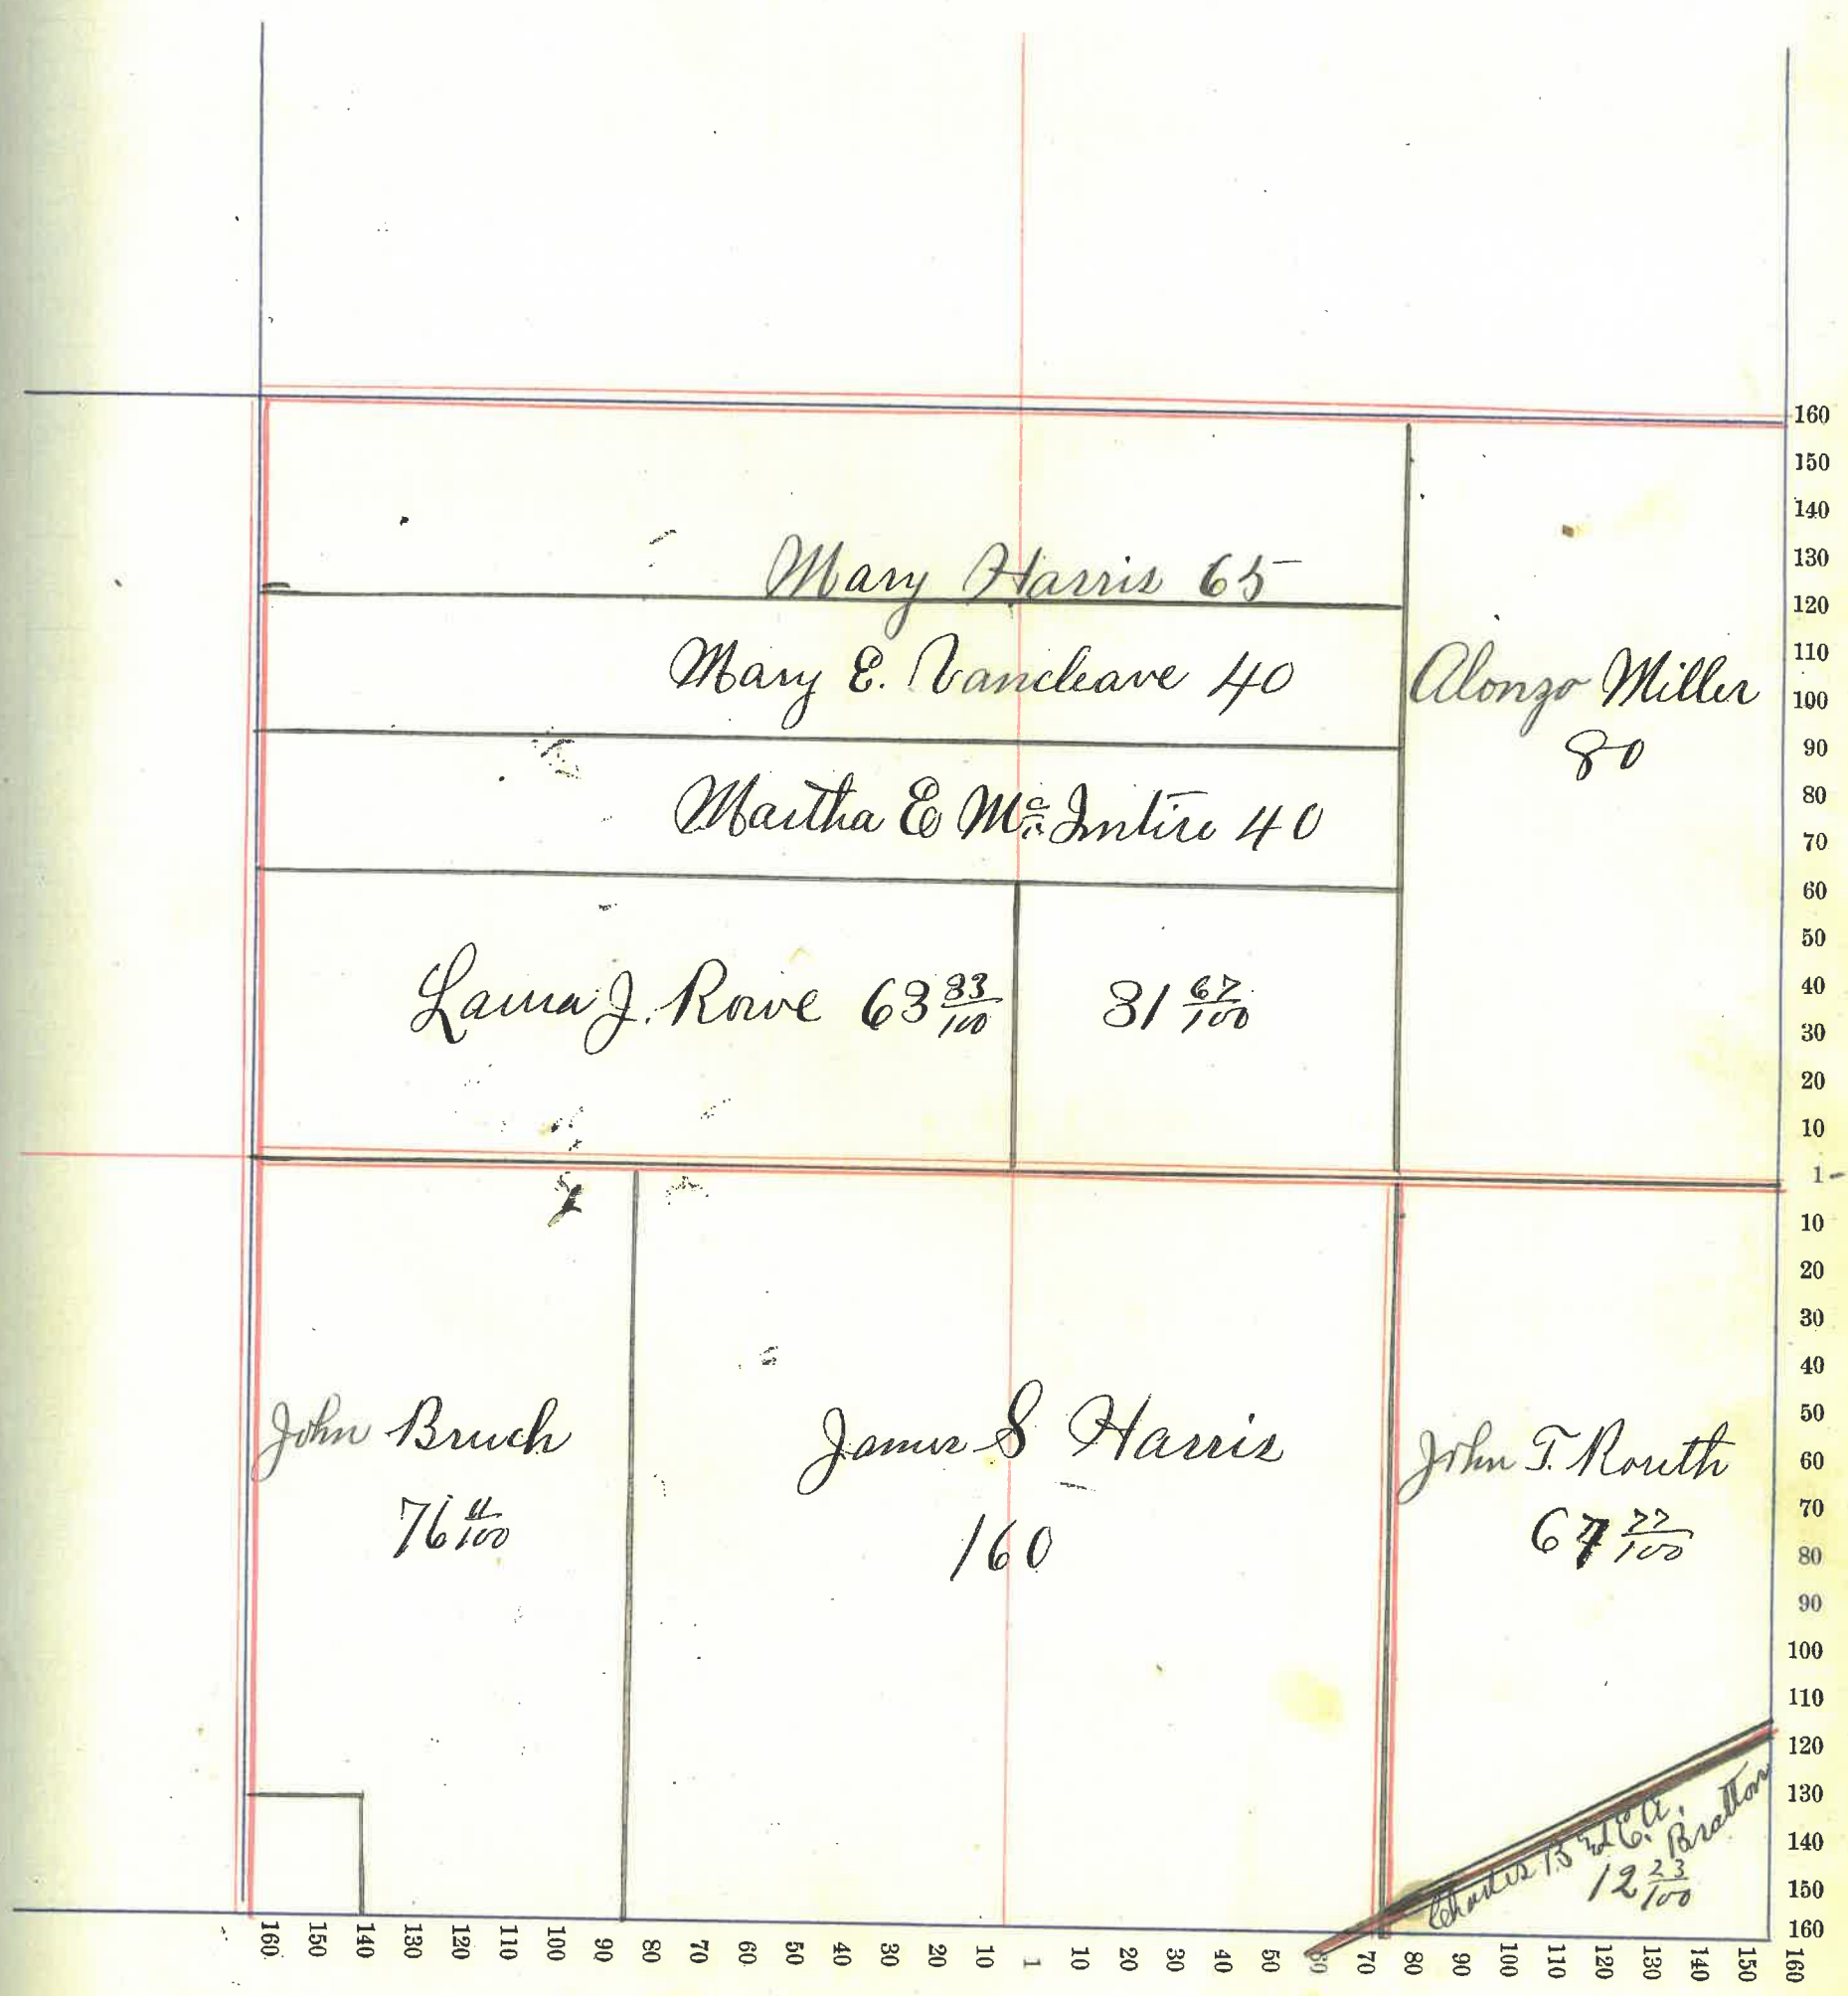 Mary Harris 65
Mary E. Vancleave 40
Alonzo Miller
80
Martha E Mc Intire 40
Laura J. Rowe 63 33/100
31 67/100
John Bruch
76 11/100
James S Harris
160
John T. Routh
67 77/100
Charles B & E. A. Bratton
12 23/100
160
150
140
130
120
110
100
90
80
70
60
50
40
30
20
10
1
10
20
30
40
50
60
70
80
90
100
110
120
130
140
150
160
160 150 140 130 120 110 100 90 80 70 60 50 40 30 20 10 1 10 20 30 40 50 60 70 80 90 100 110 120 130 140 150 160